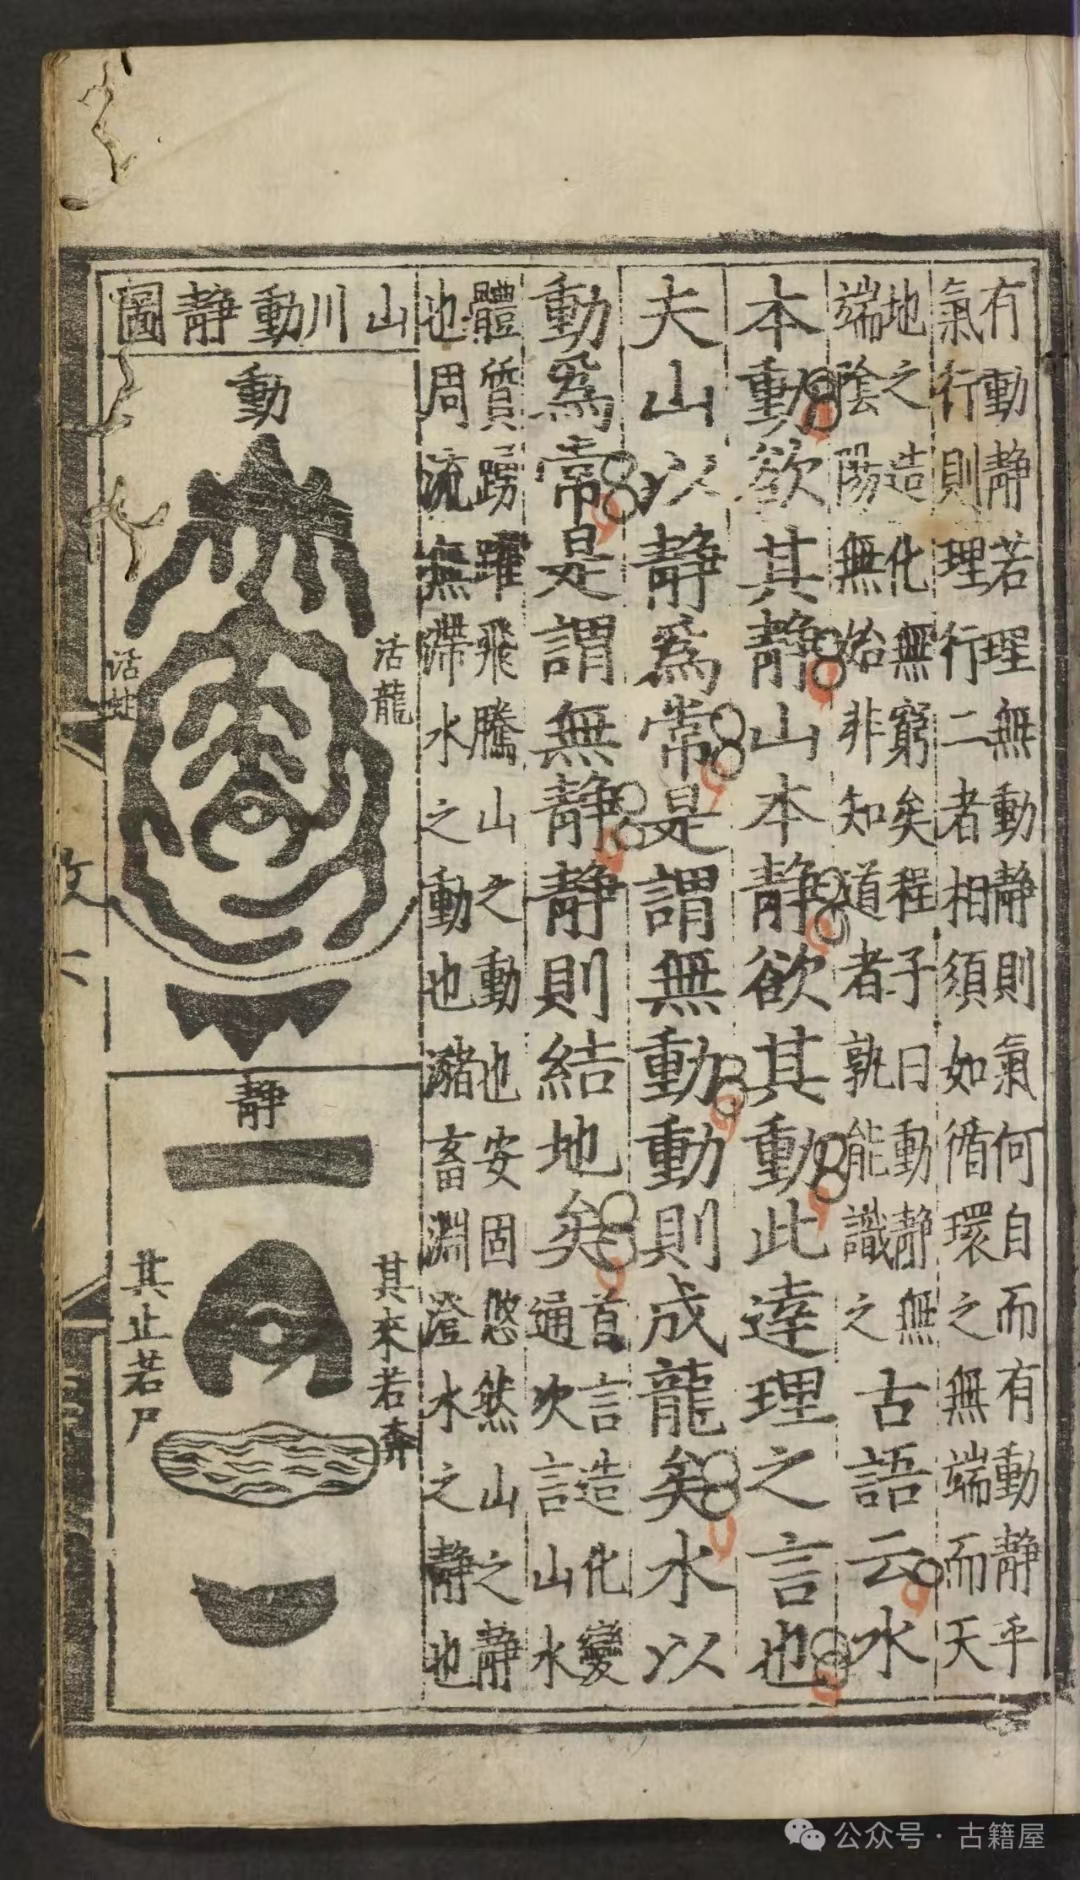 有動靜若理無動靜則氣何自而有動靜乎
氣行則理行二者相須如循環之無端而天
地之造化無窮矣程子曰動靜無
端陰陽無始非知道者孰能識之
古語云水
本動欲其靜山本靜欲其動此達理之言也
夫山以靜爲常是謂無動動則成龍矣水以
動爲常是謂無靜靜則結地矣
首言造化變
通次言山水
體質踴躍飛騰山之動也安固悠然山之靜
也周流無滯水之動也瀦畜淵澄水之靜也
山川動靜圖
動
活龍
活蛇
靜
其來若奔
其止若尸
公众号·古籍屋